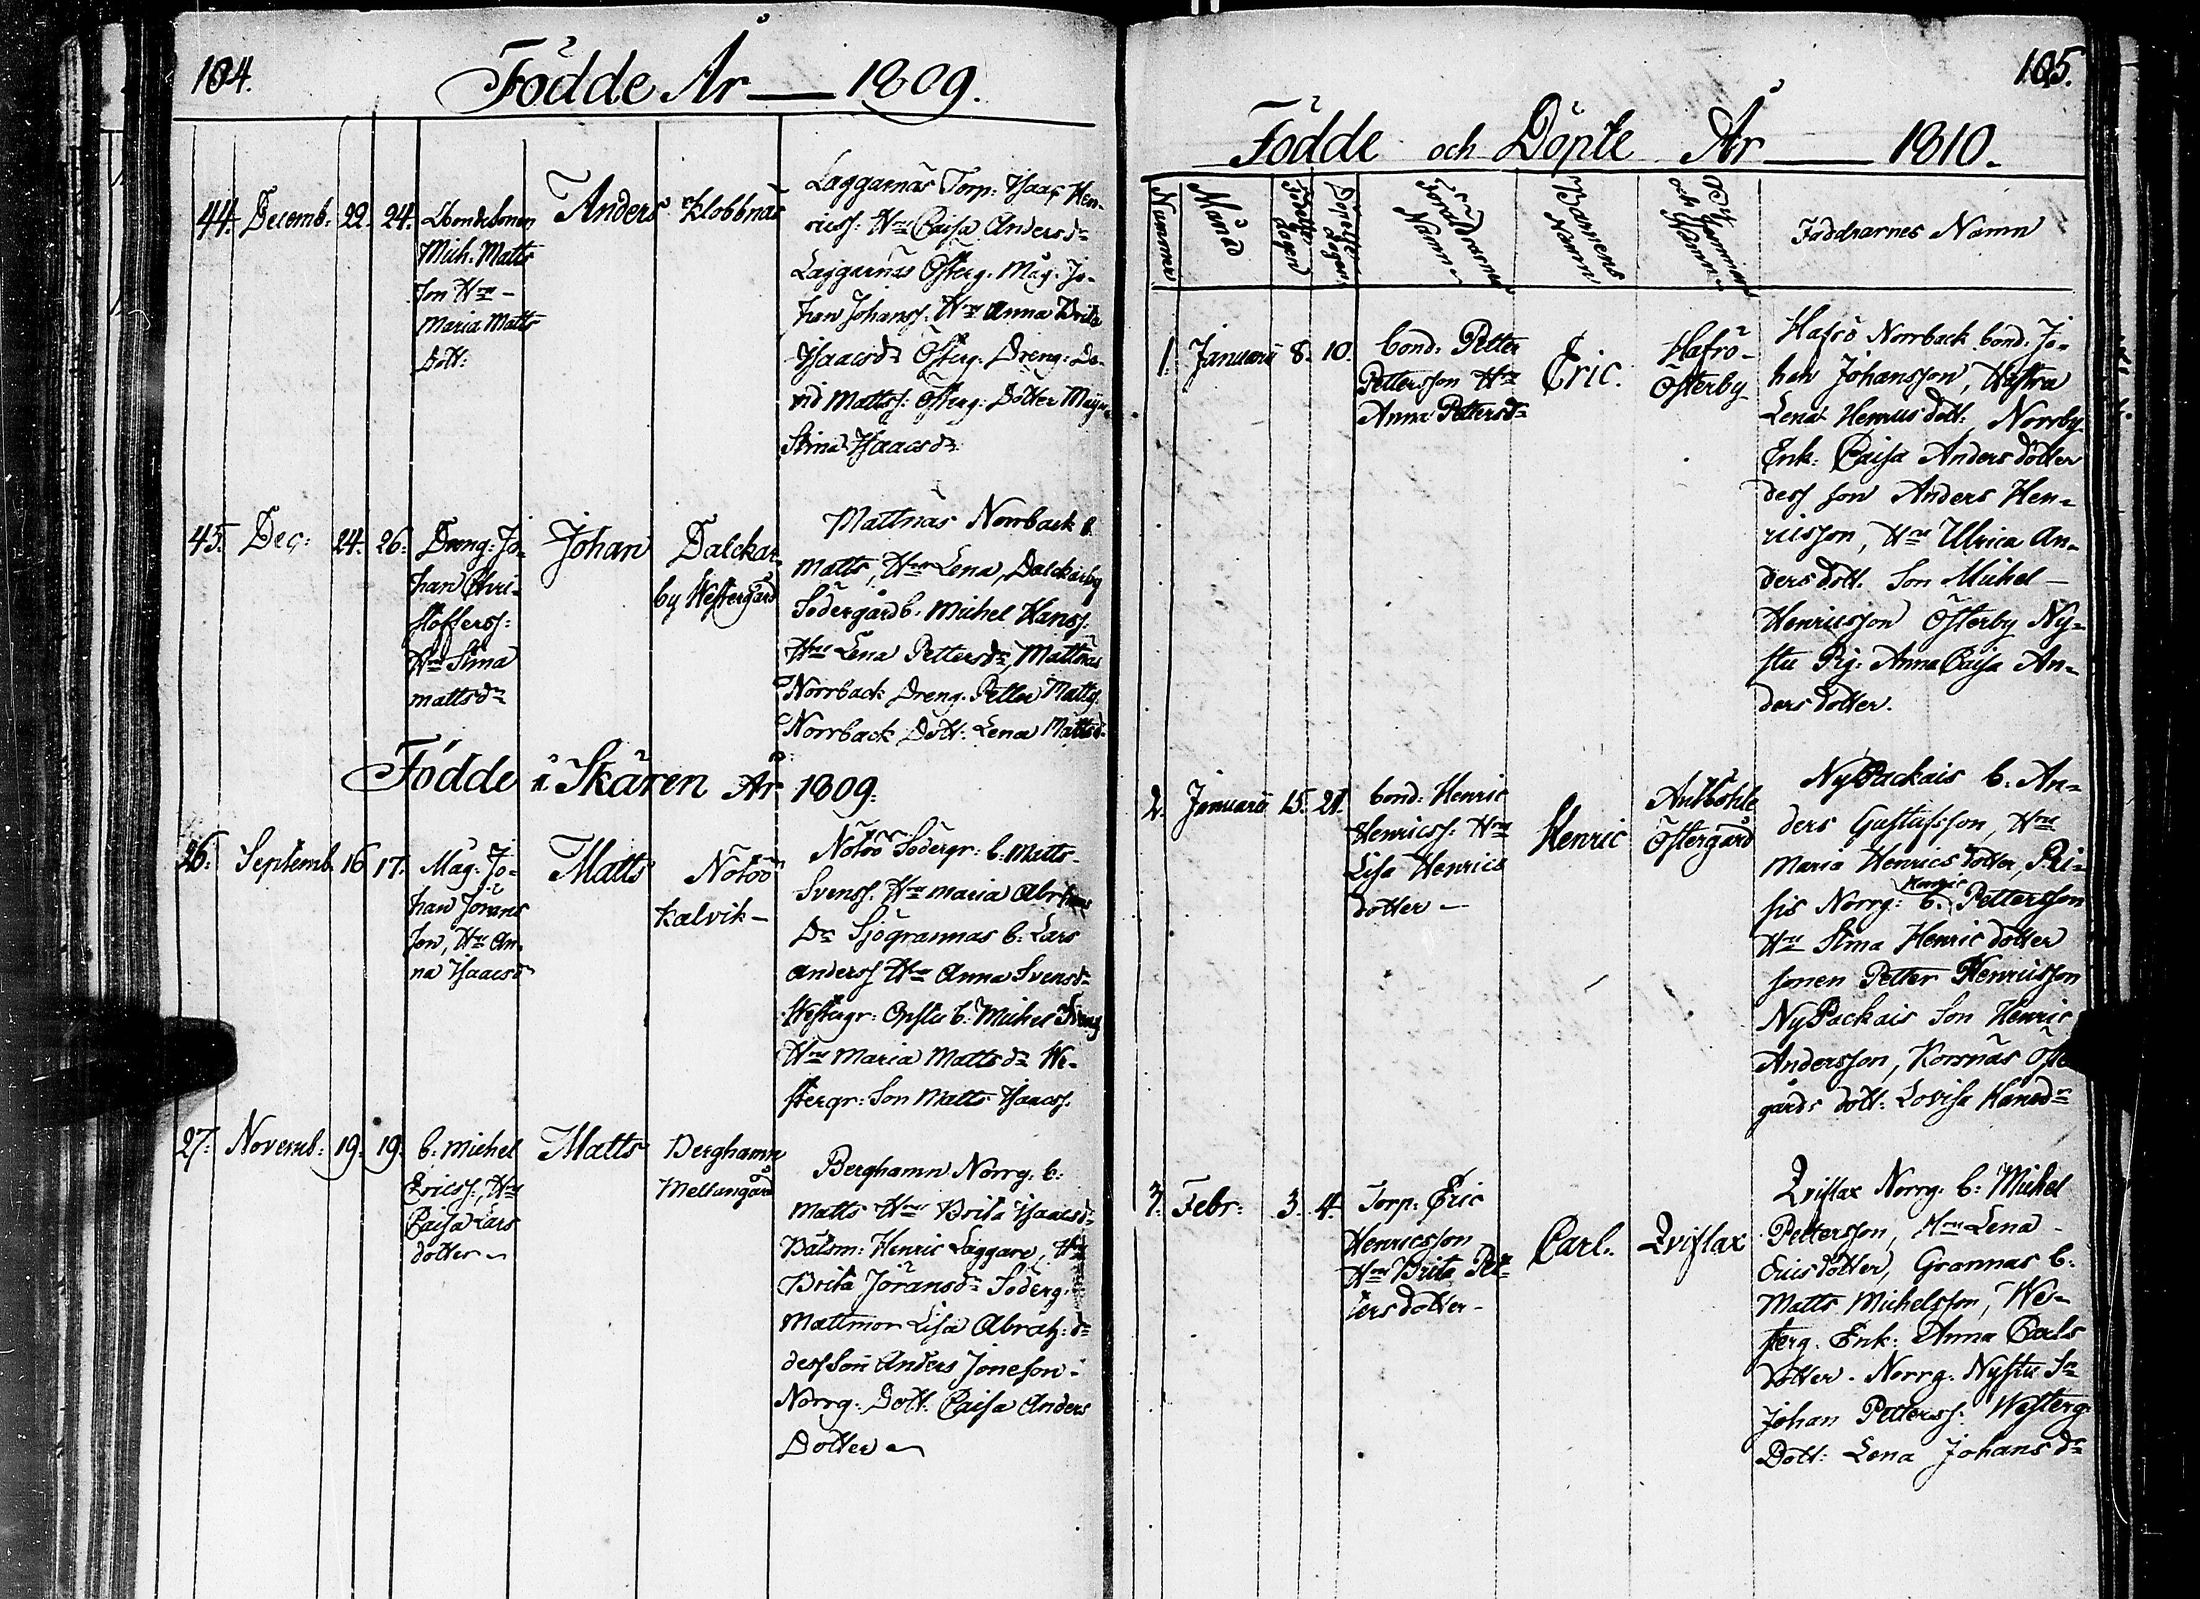 104.
Födde År — 1809.
44. Decemb. 22. 24. Anders Klobbnäs
Bondesonen
Mich. Matts
son Hru
Maria Matts
Dott:
Laggarnäs Torp: Isaac Hen-
ricss: Hru Caisa Andersdr
Laggarnäs Österg. Måg. Jo-
han Johanss. Hru Anna Brita
Isaacsdr Österg. Dreng: Da-
vid Mattss: Österg: Dotter Maja
Stina Isaacsdr
45. Dec: 24. 26. Johan
Dreng: Jo-
han Chri-
stofferss:
Hru Stina
mattsdr
Dalckar-
by Westergård
Mattnäs Norrback b.
Matts, Hru Lena, Dalckarby
Södergård b. Michel Hanss.
Hru Lena Pettersdr, Mattnäs
Norrback Dreng. Petter Mattss.
Norrback Dott: Lena Mattsdr
Födde i Skären År 1809.
26. Septemb. 16 17. Matts
Måg. Jo-
han Jörans
son, Hru An-
na Isaacsdr
Nötöö
Kalvik —
Nötöö Södergr: b. Matts
Svenss. Hru Maria Abrhams
Dr Sjögrannas b. Lars
Anderss Hru Anna Svensdr
Westergr: Opstu b. Michel Svenss
Hru Maria Mattsdr We-
stergr: Son Matts Isaacss.
27. Novemb: 19. 19. Matts
b. Michel
Ericss:, Hru
Caisa Lars
dotter
Berghamn
Mellangård
Berghamn Norrg. b.
Matts Hru Brita Isaacsdr
Båtsm: Henric Laggare, Hru
Brita Jöransdr Söderg.
Mattmor Lisa Abrah: dr
dess Son Anders Joneson
Norrg: Dott. Caisa Anders
Dotter
105.
Födde och Döpte År — 1810.
Nummer
Månad
Födelse dagen
Döpelse dagen
Föräldrarnas Namn
Barnens Namn
By Hemman och Namn
Faddrarnes Namn
1. Januarii 8. 10. Eric.
bond: Petter
Pettersson Hru
Anna Pettersdr
Hafrö
Österby
Hafrö Norrback bond. Jo-
han Johansson, Hustru
Lena Henrics dott: Norrby
Enk: Caisa Anders dotter
dess son Anders Hen-
ricsson, Hru Ullrica An-
ders dott. Son Michel
Henricsson Österby Ny-
stu Pig: Anna Caisa An-
ders dotter.
2. Januarii 15. 21. Henric
bond: Henric
Henricss: Hru
Lisa Henrics
dotter
Antböhle
Östergård
NyPackais b. An-
ders Gustafsson, Hru
Maria Henrics dotter, Pri-
sis Norrg: b. Henric Pettersson
Hru Stina Henric dotter
sonen Petter Henricsson
NyPackais Son Henric
Andersson, Korsnäs Öster
gårds dott: Lovisa Hansdr
3. Febr: 3. 4. Carl. Qviflax
Torp: Eric
Henricsson
Hru Brita Pet-
ters dotter
Qviflax Norrg: b. Michel
Pettersson, Hru Lena
Erics dotter, Grannas b.
Matts Michelsson, We-
sterg. Enk: Anna Carls
dotter. Norrg. Nystu Sn
Johan Petterss: Westerg.
Dott: Lena Johansdr